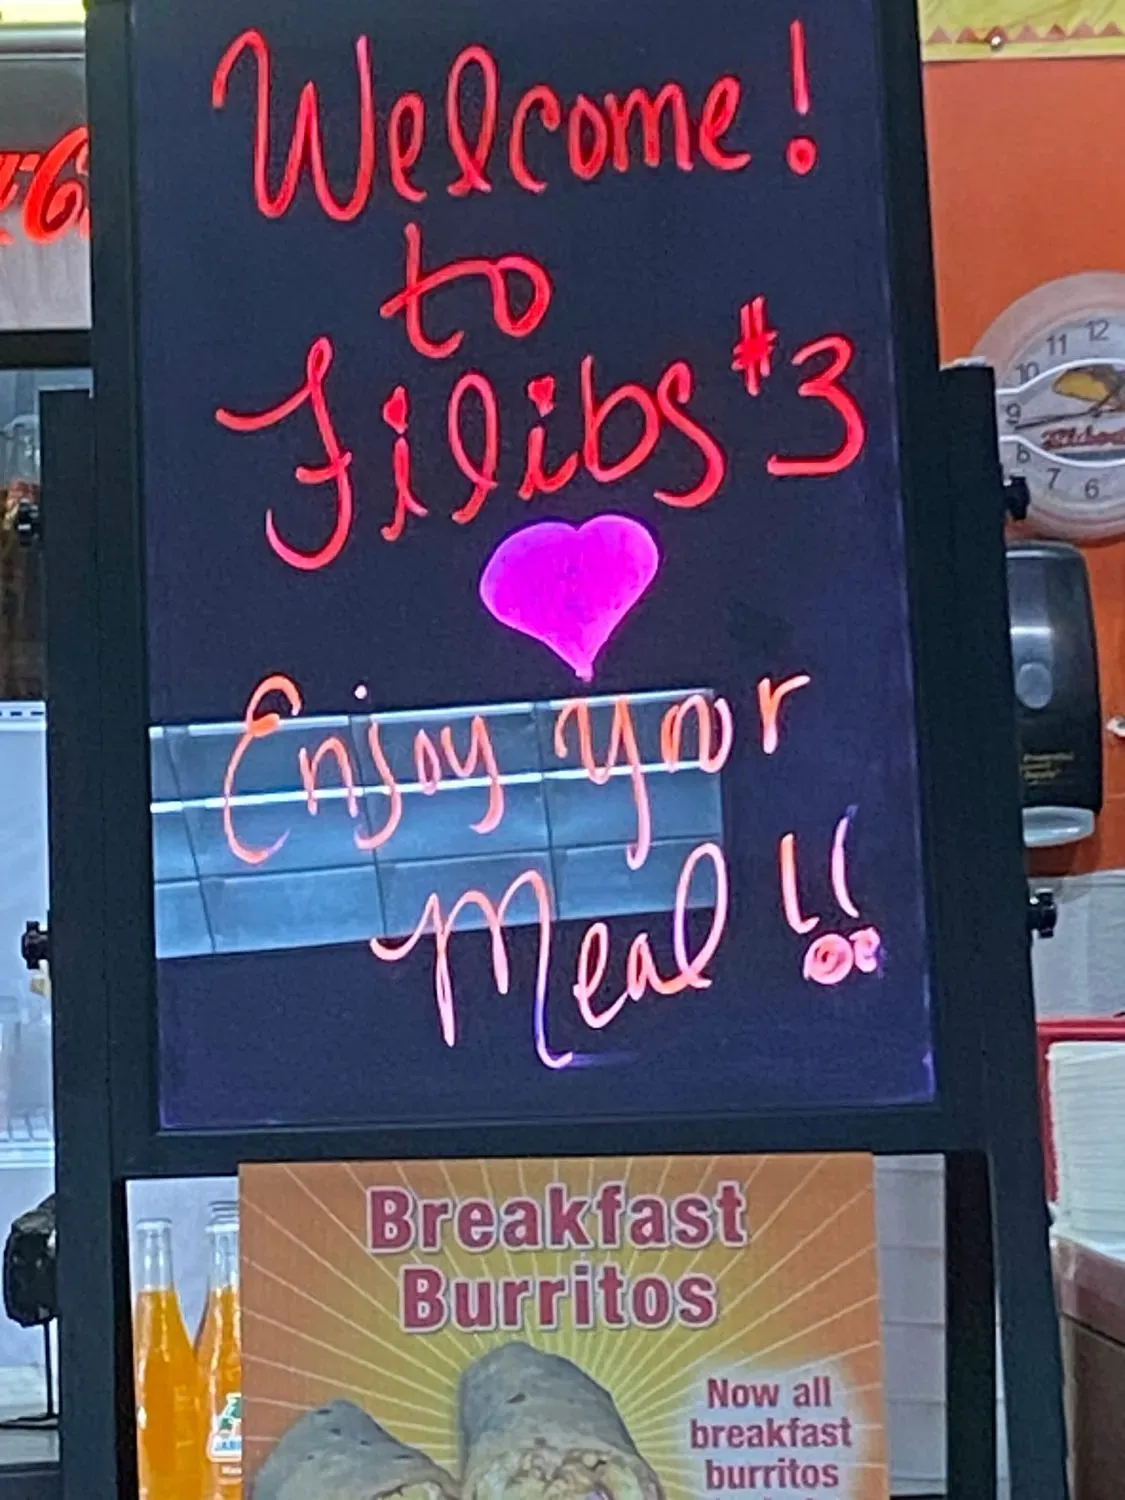 Welcome!
to
Filibs #3
Enjoy your
Meal!!
Breakfast
Burritos
Now all
breakfast
burritos
12
11
10
9
8
7
6